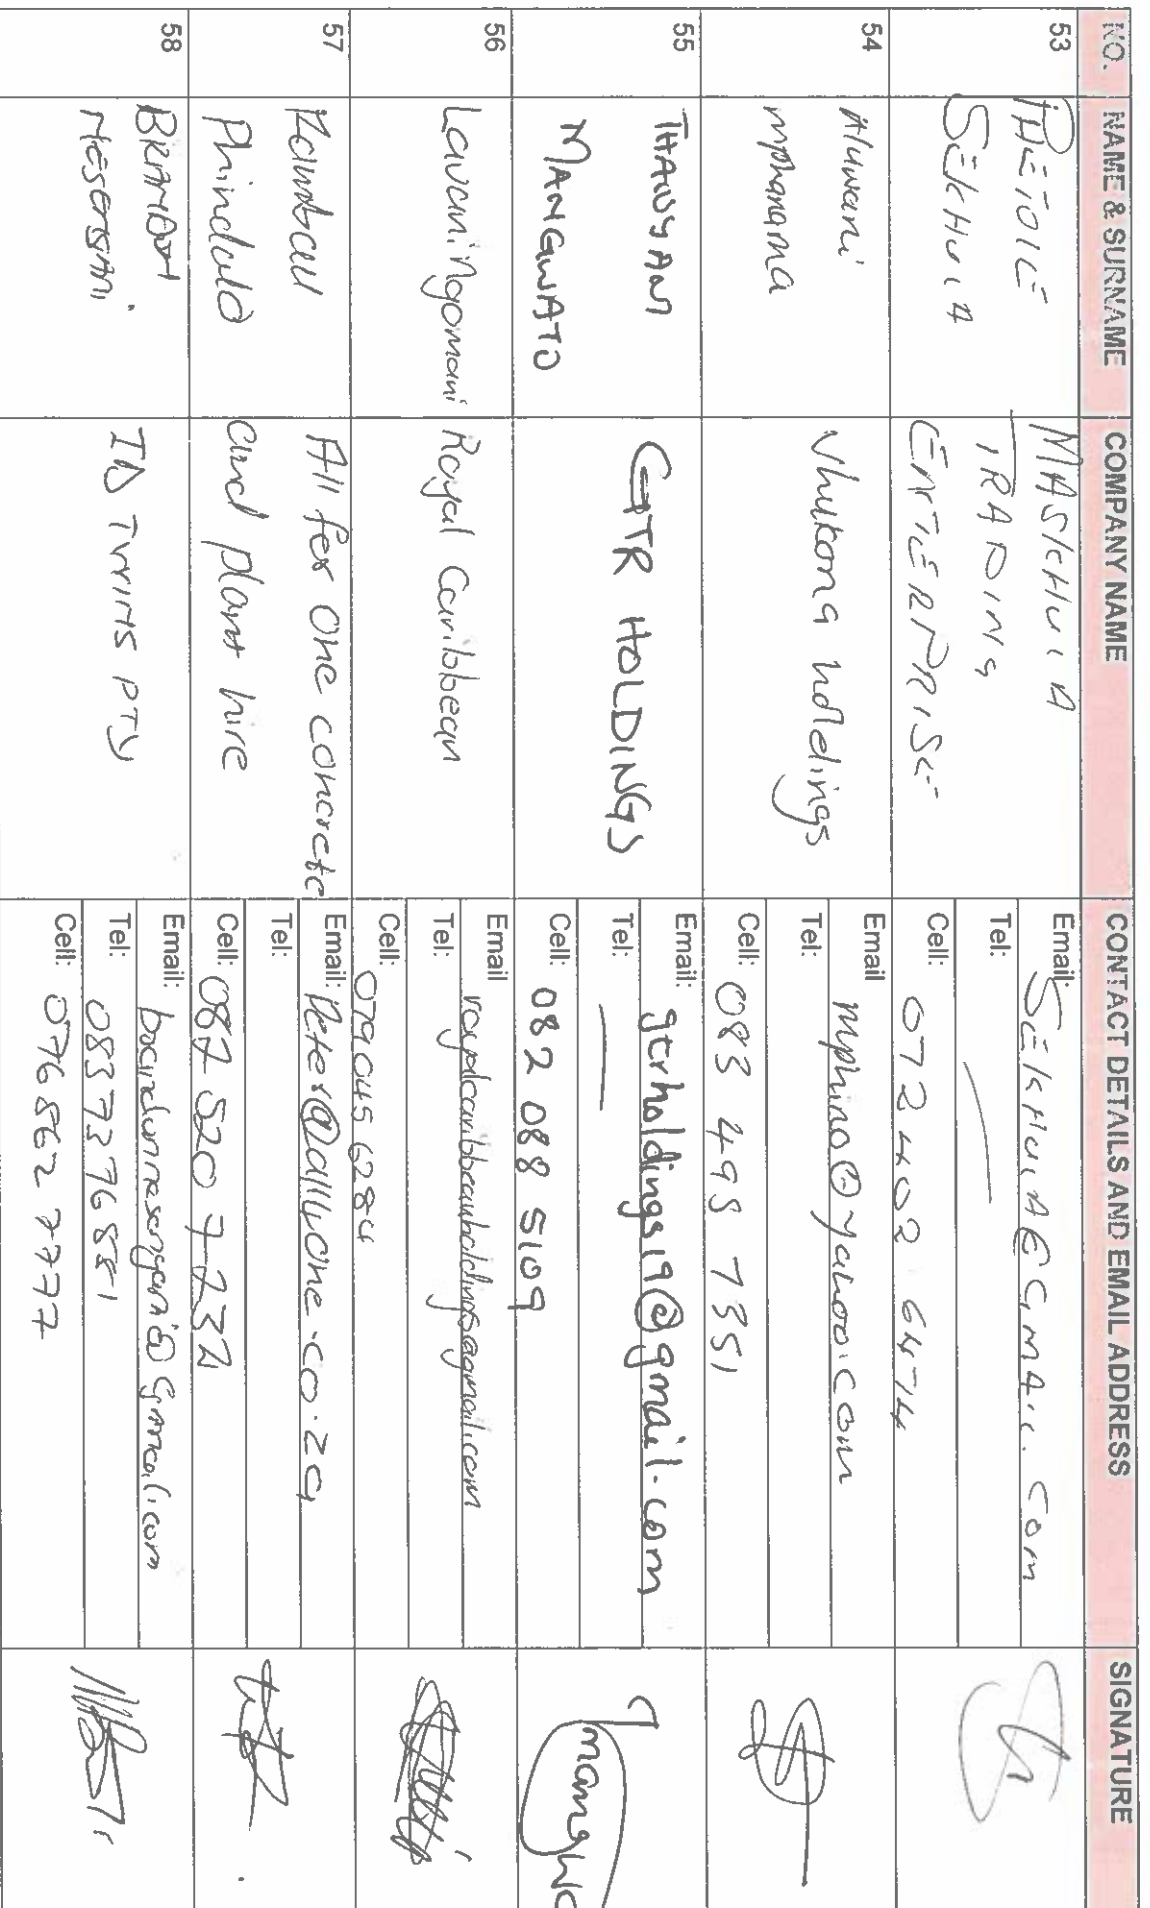 NO. NAME & SURNAME COMPANY NAME CONTACT DETAILS AND EMAIL ADDRESS SIGNATURE
53
SEKHUIA
MASKHUIA
TRADING
ENTERPRISE
Email: SEKHUIA@GMAIL.COM
Tel: —
Cell: 072 402 6474
54
Aluwani
mphanama
Vhukona holdings
Email mphino@yahoo.com
Tel:
Cell: 083 495 7351
55
MANGWATO
GTR HOLDINGS
Email: gtrholdings19@gmail.com
Tel: —
Cell: 082 088 5109
56
Lavani Ngomani
Royal Caribbean
Email royalcaribbeanholdings@gmail.com
Tel:
Cell: 079 045 6284
57
Phindulo
All for One concrete
and plant hire
Email:
Tel:
Cell:
58
ID TWINS PTY
Email:
Tel: 0837376881
Cell: 076 862 7777